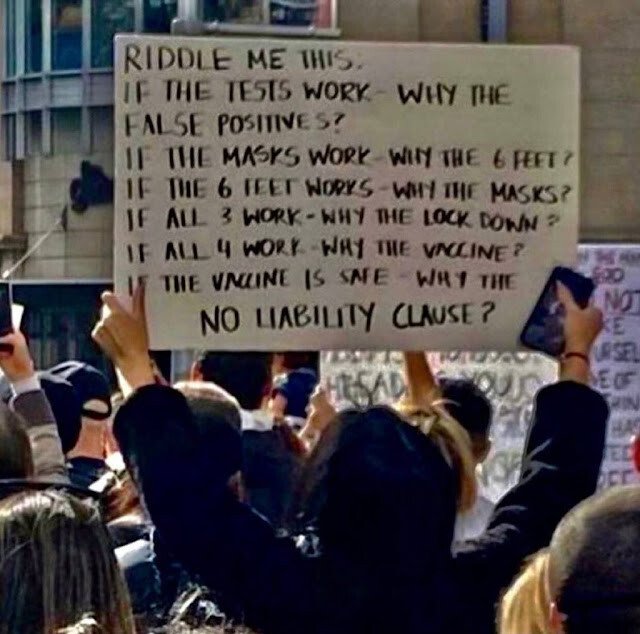 RIDDLE ME THIS.
IF THE TESTS WORK - WHY THE
FALSE POSITIVES?
IF THE MASKS WORK - WHY THE 6 FEET?
IF THE 6 FEET WORKS - WHY THE MASKS?
IF ALL 3 WORK - WHY THE LOCK DOWN?
IF ALL 4 WORK - WHY THE VACCINE?
IF THE VACCINE IS SAFE - WHY THE
NO LIABILITY CLAUSE?
NOT
YOU